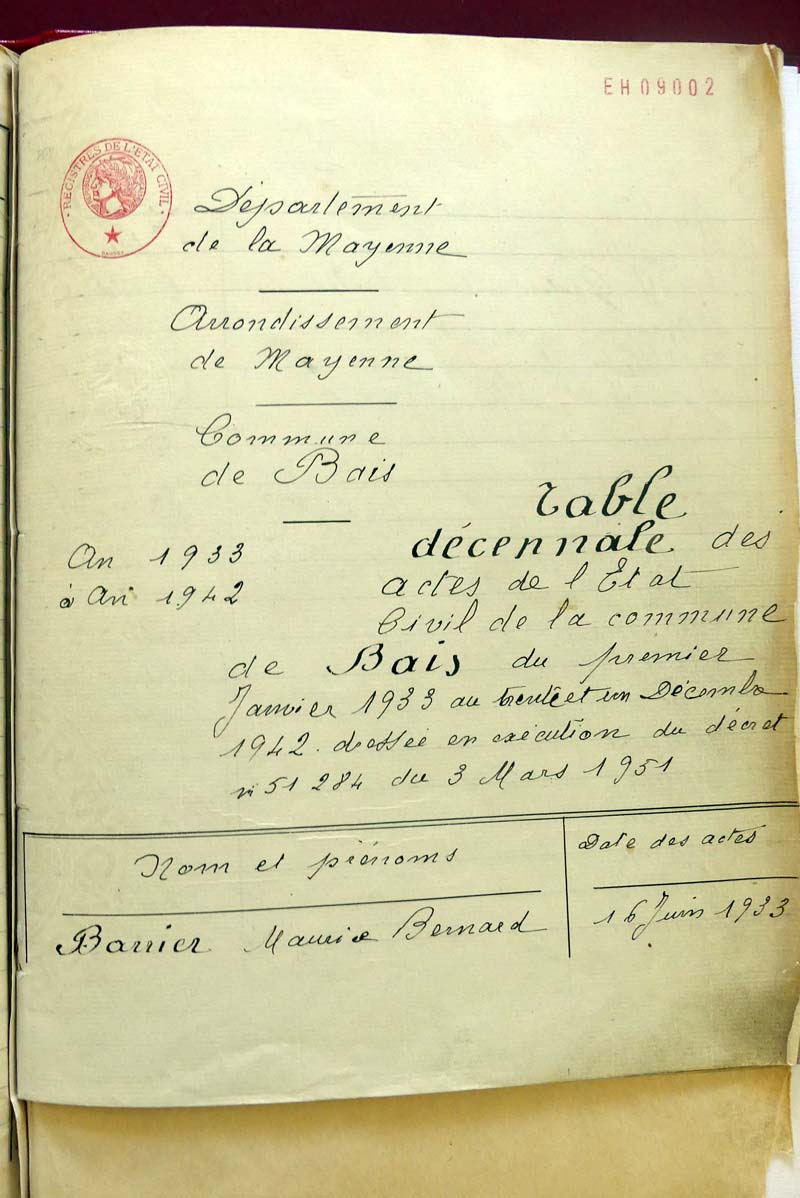 EH09002
· REGISTRES DE L'ÉTAT CIVIL ·
Département
de la Mayenne
Arrondissement
de Mayenne
Commune
de Bais
An 1933
à An 1942
Table
décennale des
actes de l'Etat
Civil de la commune
de Bais du premier
Janvier 1933 au trente et un Décembre
1942. dressée en exécution du décret
n° 51 284 du 3 Mars 1951
Nom et prénoms
Date des actes
Barrier Maurice Bernard
16 Juin 1933